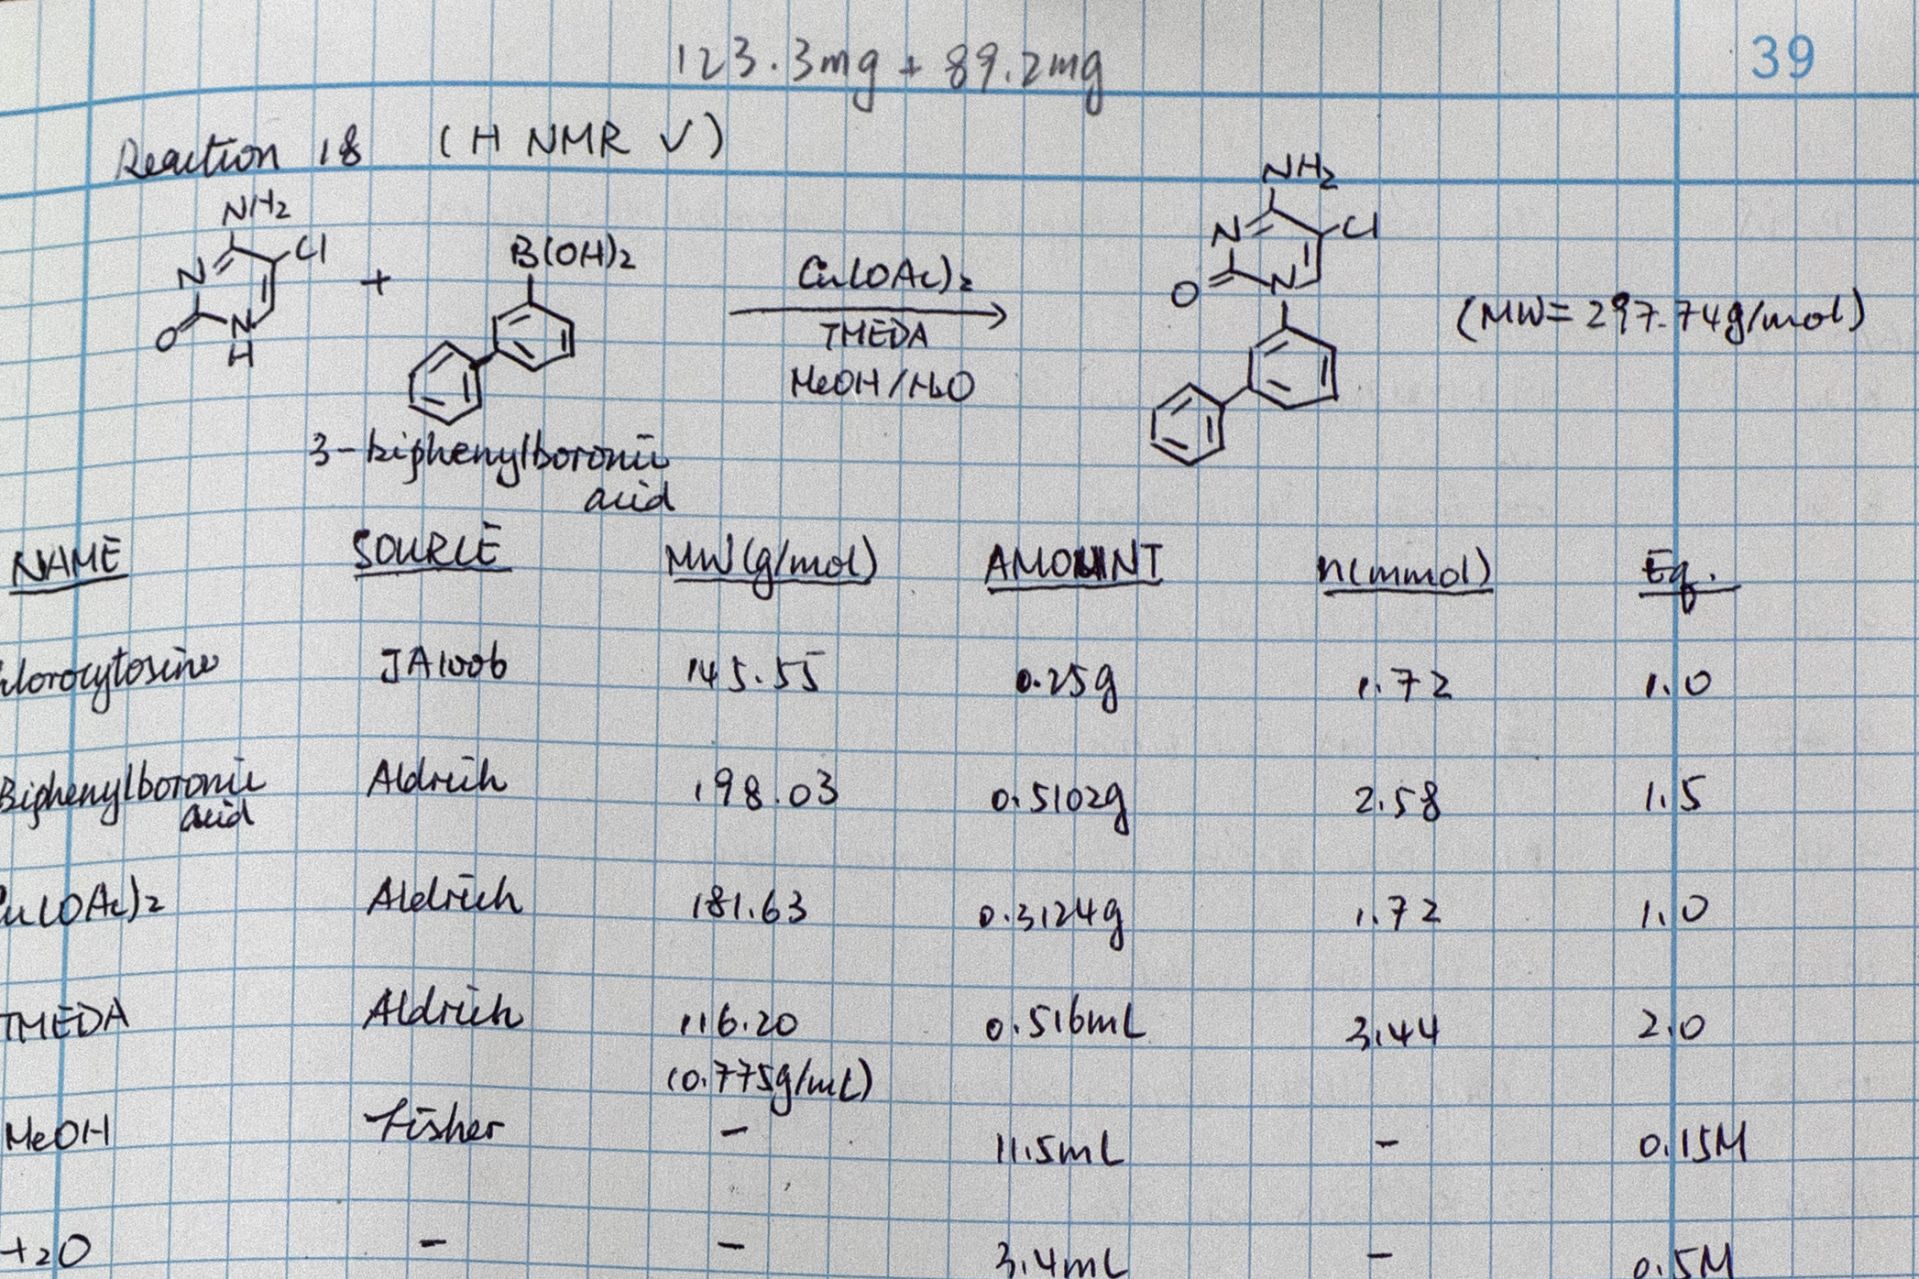 123.3mg + 89.2mg
39
Reaction 18 (H NMR √)
NH2
N
Cl
O
N
H
+
B(OH)2
3-biphenylboronic
acid
Cu(OAc)2
TMEDA
MeOH/H2O
NH2
N
Cl
O
N
(MW= 297.74g/mol)
NAME SOURCE MW(g/mol) AMOUNT n(mmol) Eq.
lorocytosine JA1006 145.55 0.25g 1.72 1.0
Biphenylboronic Aldrich 198.03 0.5102g 2.58 1.5
acid
Cu(OAc)2 Aldrich 181.63 0.3124g 1.72 1.0
TMEDA Aldrich 116.20 0.516mL 3.44 2.0
(0.775g/mL)
MeOH Fisher - 11.5mL - 0.15M
H2O - - 3.4mL - 0.5M